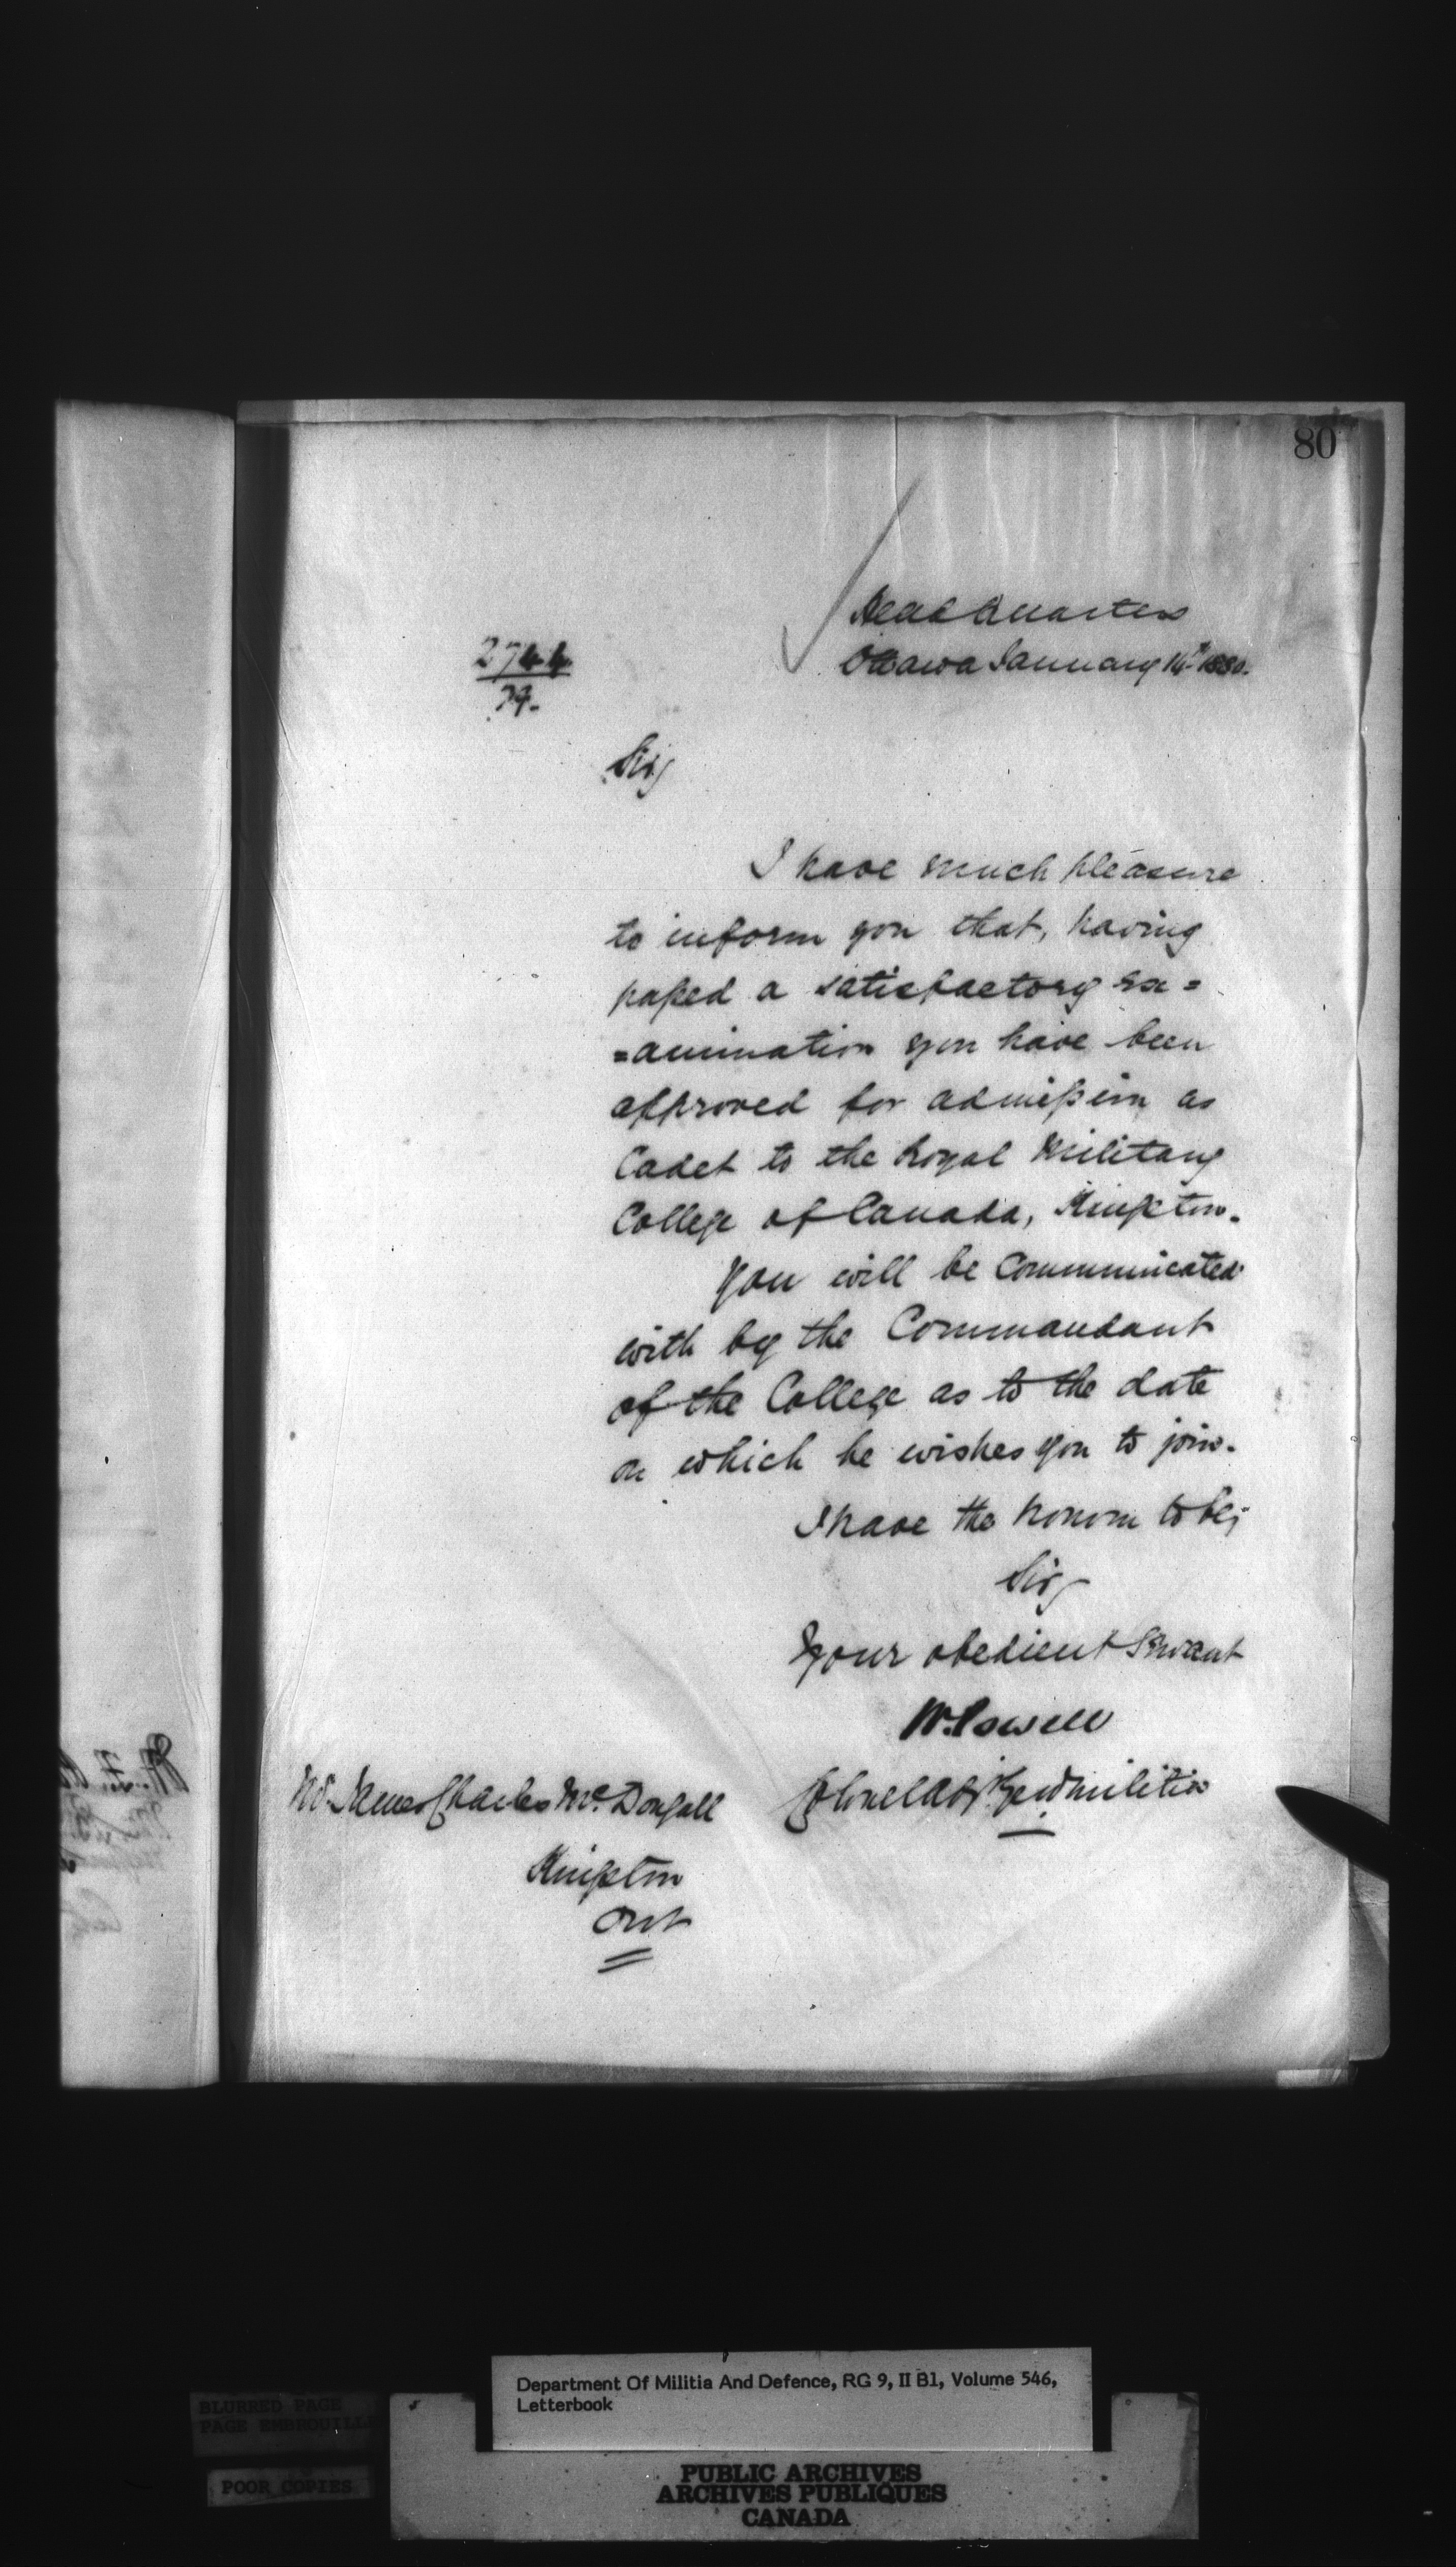 80
Head Quarters
Ottawa January 14th 1880.
2744
79.
Sir,
I have much pleasure
to inform you that, having
passed a satisfactory ex=
=amination you have been
approved for admission as
Cadet to the Royal Military
College of Canada, Kingston.
You will be communicated
with by the Commandant
of the College as to the date
on which he wishes you to join.
I have the honour to be,
Sir,
Your obedient Servant
W. Powell
Colonel Adjt. Genl Militia
Mr. James Charles McDougall
Kingston
Ont
Department Of Militia And Defence, RG 9, II B1, Volume 546,
Letterbook
BLURRED PAGE
PAGE EMBROUILLE
POOR COPIES
PUBLIC ARCHIVES
ARCHIVES PUBLIQUES
CANADA